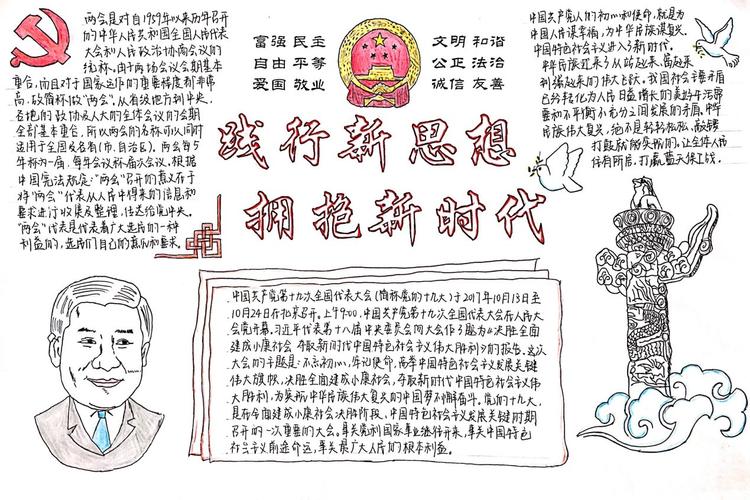 两会是对自1959年以来历年召开
的中华人民共和国全国人民代表
大会和人民政治协商会议的
统称。由于两场会议会期基本
重合,而且对于国家运作的重要程度都非常
高,故简称做"两会"。从省级地方到中央,
各地的政协及人大的全体会议的会期
全部基本重合,所以两会的名称可以同时
适用于全国及各省(市、自治区)。两会每5
年称为一届,每年会议称届次会议。根据
中国宪法规定:"两会"召开的意义在于
将"两会"代表从人民中得来的信息和
要求进行收集及整理,传达给党中央。
"两会"代表是代表着广大选民的一种
利益的,选民们自己的意见和要求。
富强 民主
自由 平等
爱国 敬业
文明 和谐
公正 法治
诚信 友善
中国共产党人的初心和使命,就是为
中国人民谋幸福,为中华民族谋复兴。
中国特色社会主义进入了新时代。
中华民族迎来了从站起来、富起来
到强起来的伟大飞跃。我国社会主要矛盾
已经转化为人民日益增长的美好生活需
要和不平衡不充分之间发展的矛盾。中华
民族伟大复兴,绝不是轻轻松松、敲锣
打鼓就能实现的。让全体人民
住有所居。打赢蓝天保卫战。
践行新思想
拥抱新时代
中国共产党第十九次全国代表大会(简称党的十九大)于2017年10月18日至
10月24日在北京召开。上午9:00,中国共产党第十九次全国代表大会在人民大
会堂开幕。习近平代表第十八届中央委员会向大会作了题为《决胜全面
建成小康社会 夺取新时代中国特色社会主义伟大胜利》的报告。这次
大会的主题是:不忘初心,牢记使命,高举中国特色社会主义发展关键
伟大旗帜,决胜全面建成小康社会,夺取新时代中国特色社会主义伟
大胜利,为实现中华民族伟大复兴的中国梦不懈奋斗。党的十九大,
是在全面建成小康社会决胜阶段、中国特色社会主义发展关键时期
召开的一次重要的大会。事关党和国家事业继往开来,事关中国特色
社会主义前途命运,事关最广大人民的根本利益。